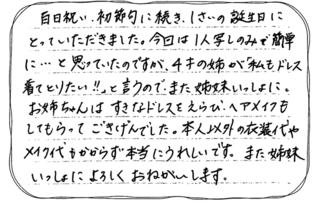 百日祝い、初節句に続き、1さいの誕生日に
とっていただきました。今回は1人写しのみで簡単
に…と思っていたのですが、4才の姉が「私もドレス
着てとりたい!!」と言うので、また姉妹いっしょに。
お姉ちゃんはすきなドレスをえらび、ヘアメイクも
してもらってごきげんでした。本人以外の衣装代や
メイク代もかからず本当にうれしいです。また姉妹
いっしょによろしくおねがいします。